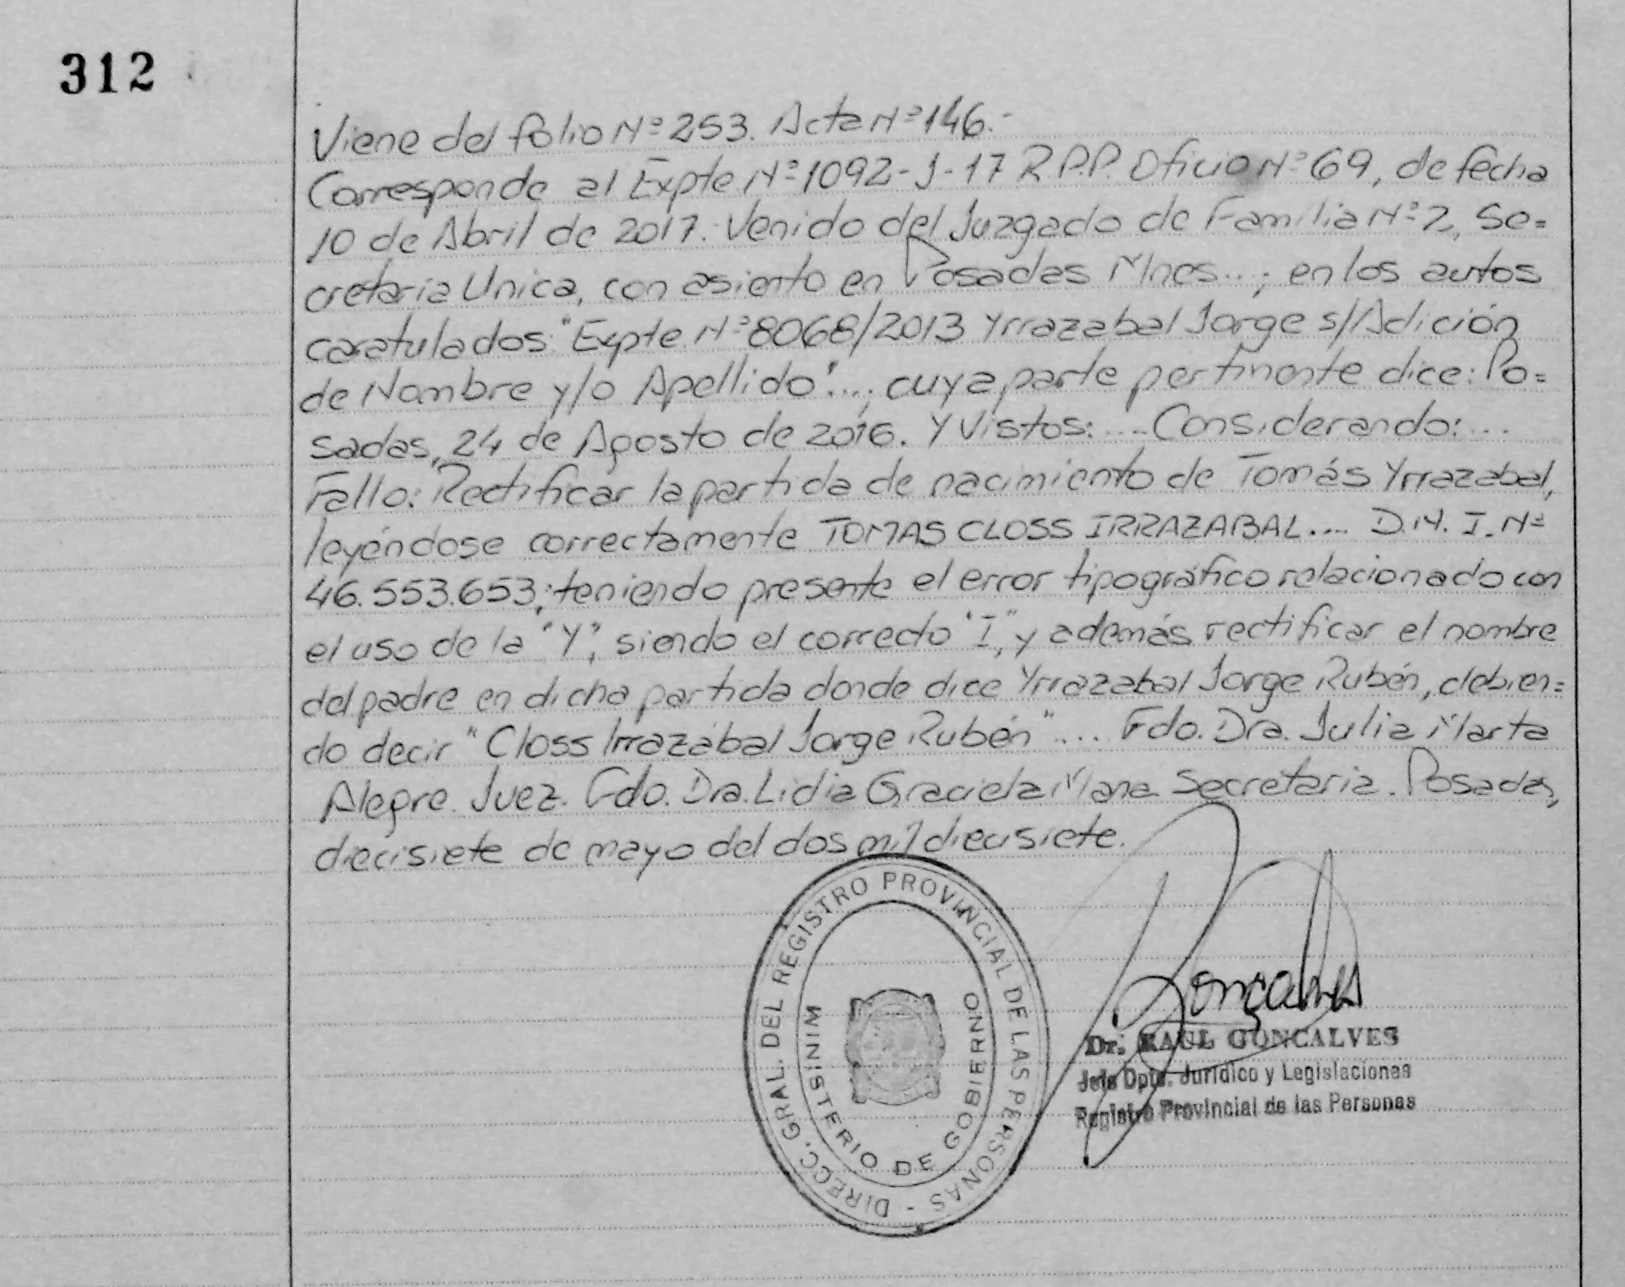 312
Viene del folio Nº 253. Acta Nº 146.-
Corresponde al Expte Nº 1092-J-17 R.P.P. Oficio Nº 69, de fecha
10 de Abril de 2017. Venido del Juzgado de Familia Nº 2, Se=
cretaria Unica, con asiento en Posadas Mnes...; en los autos
caratulados: "Expte. Nº 8068/2013 Yrrazabal Jorge s/Adición
de Nombre y/o Apellido"...; cuya parte pertinente dice: Po=
sadas, 24 de Agosto de 2016. Y Vistos: ... Considerando: ...
Fallo: Rectificar la partida de nacimiento de Tomás Yrrazabal,
leyéndose correctamente TOMAS CLOSS IRRAZABAL.... D.N.I. Nº
46.553.653; teniendo presente el error tipográfico relacionado con
el uso de la "Y", siendo el correcto "I", y además rectificar el nombre
del padre en dicha partida donde dice Yrrazabal Jorge Rubén, debien=
do decir "Closs Irrazabal Jorge Rubén"... Fdo. Dra. Julia Marta
Alegre. Juez. Fdo. Dra. Lidia Graciela Secretaria. Posadas,
diecisiete de mayo del dos mil diecisiete.
DIRECC. GRAL. DEL REGISTRO PROVINCIAL DE LAS PERSONAS -
MINISTERIO DE GOBIERNO
Gonçalves
Dr. RAUL GONCALVES
Jefe Dpto. Jurídico y Legislaciones
Registro Provincial de las Personas